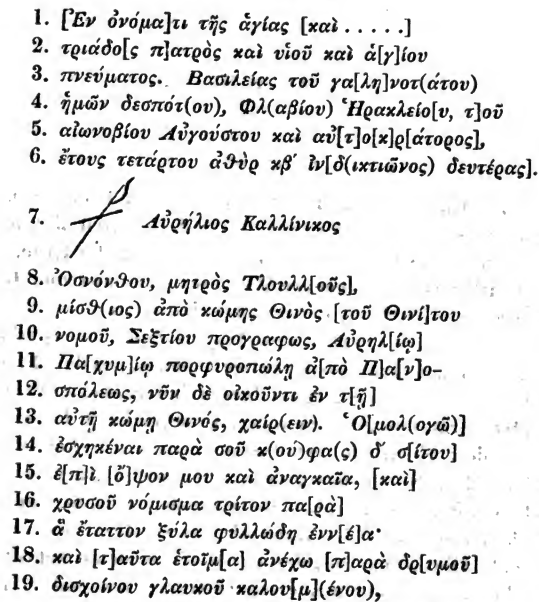 1. [Ἐν ὀνόμα]τι τῆς ἁγίας [καὶ . . . . .]
2. τριάδο[ς π]ατρὸς καὶ υἱοῦ καὶ ἁ[γ]ίου
3. πνεύματος. Βασιλείας τοῦ γα[λη]νοτ(άτου)
4. ἡμῶν δεσπότ(ου), Φλ(αβίου) Ἡρακλείο[υ, τ]οῦ
5. αἰωνοβίου Αὐγούστου καὶ αὐ[τ]ο[κ]ρ[άτορος],
6. ἔτους τετάρτου ἀθὺρ κβʹ ἰν[δ(ικτιῶνος) δευτέρας].
7. Αὐρήλιος Καλλίνικος
8. Ὀσνόνθου, μητρὸς Τλουλλ[οῦς],
9. μίσθ(ιος) ἀπὸ κώμης Θινὸς [τοῦ Θινί]του
10. νομοῦ, Σεξτίου προγραφως, Αὐρηλ[ίῳ]
11. Πα[χυμ]ίῳ πορφυροπώλῃ ἀ[πὸ Π]α[ν]ο-
12. σπόλεως, νῦν δὲ οἰκοῦντι ἐν τ[ῇ]
13. αὐτῇ κώμῃ Θινός, χαίρ(ειν). Ὁ[μολ(ογῶ)]
14. ἐσχηκέναι παρὰ σοῦ κ(ού)φα(ς) δʹ σ[ίτου]
15. ἐ[π]ὶ [ὄ]ψον μου καὶ ἀναγκαῖα, [καὶ]
16. χρυσοῦ νόμισμα τρίτον πα[ρὰ]
17. ἃ ἔταττον ξύλα φυλλώδη ἐνν[έ]α·
18. καὶ [τ]αῦτα ἑτοῖμ[α] ἀνέχω [π]αρὰ δρ[υμοῦ]
19. δισχοίνου γλαυκοῦ καλου[μ](ένου),